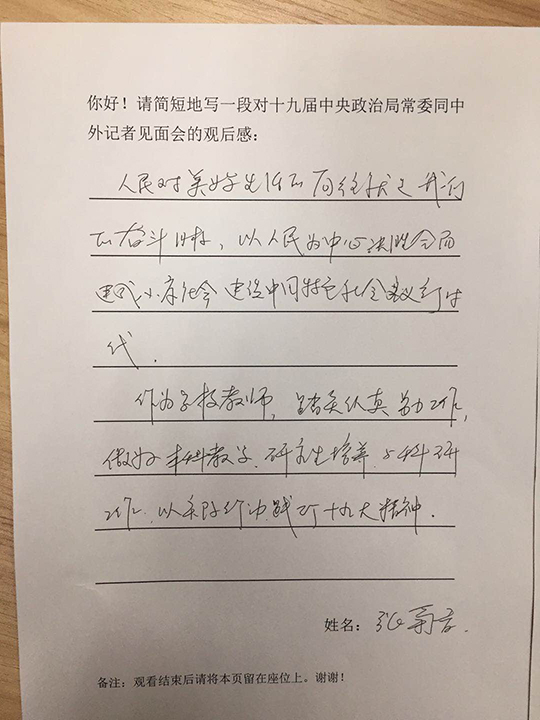 你好！请简短地写一段对十九届中央政治局常委同中
外记者见面会的观后感：
人民对美好生活的向往就是我们
的奋斗目标，以人民为中心决胜全面
建成小康社会 建设中国特色社会主义新时
代．
作为学校教师，踏实认真努力工作，
做好本科教学、研究生培养、与科研
工作．以实际行动践行十九大精神．
姓名：张
备注：观看结束后请将本页留在座位上。谢谢！